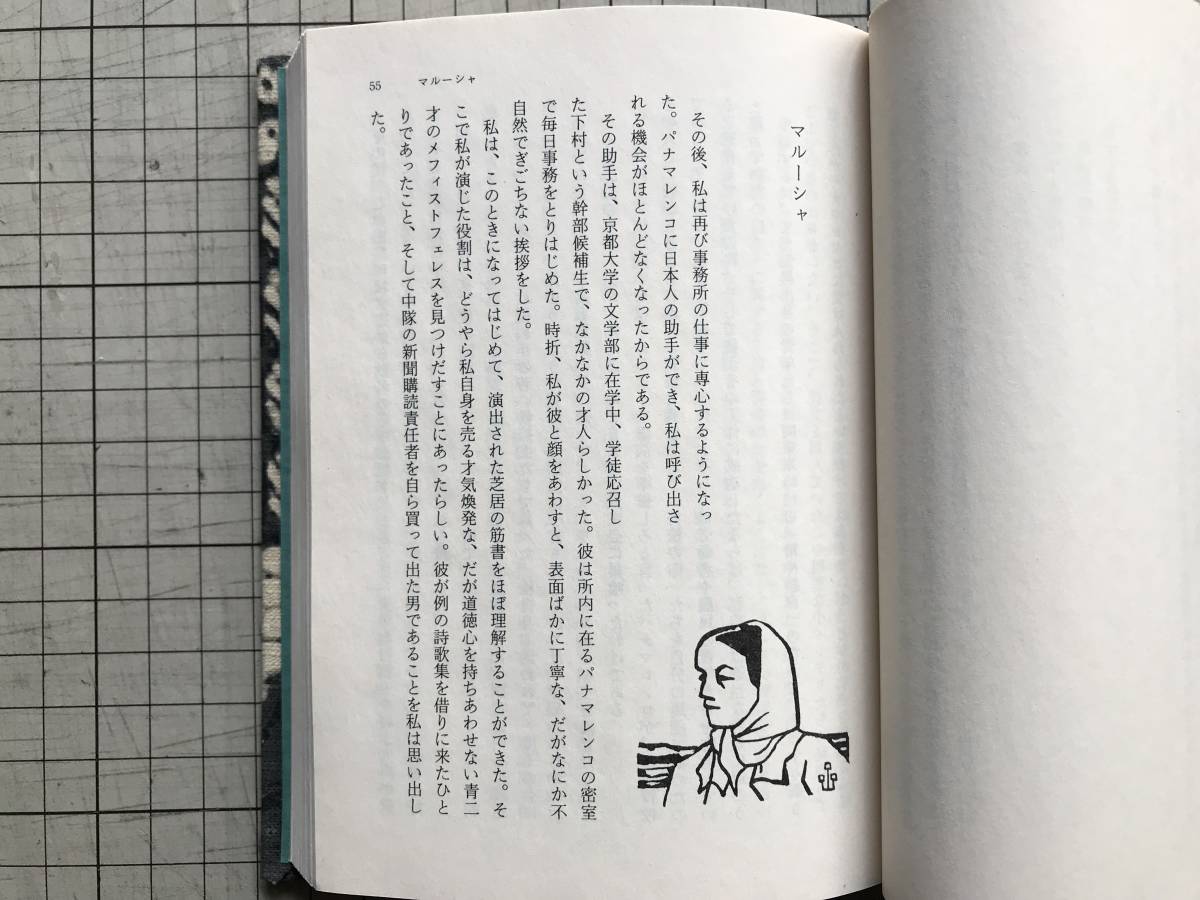 55 マルーシャ
マルーシャ
その後、私は再び事務所の仕事に専心するようになっ
た。パナマレンコに日本人の助手ができ、私は呼び出さ
れる機会がほとんどなくなったからである。
その助手は、京都大学の文学部に在学中、学徒応召し
た下村という幹部候補生で、なかなかの才人らしかった。彼は所内に在るパナマレンコの密室
で毎日事務をとりはじめた。時折、私が彼と顔をあわすと、表面ばかに丁寧な、だがなにか不
自然でぎごちない挨拶をした。
私は、このときになってはじめて、演出された芝居の筋書をほぼ理解することができた。そ
こで私が演じた役割は、どうやら私自身を売る才気煥発な、だが道徳心を持ちあわせない青二
才のメフィストフェレスを見つけだすことにあったらしい。彼が例の詩歌集を借りに来たひと
りであったこと、そして中隊の新聞購読責任者を自ら買って出た男であることを私は思い出し
た。